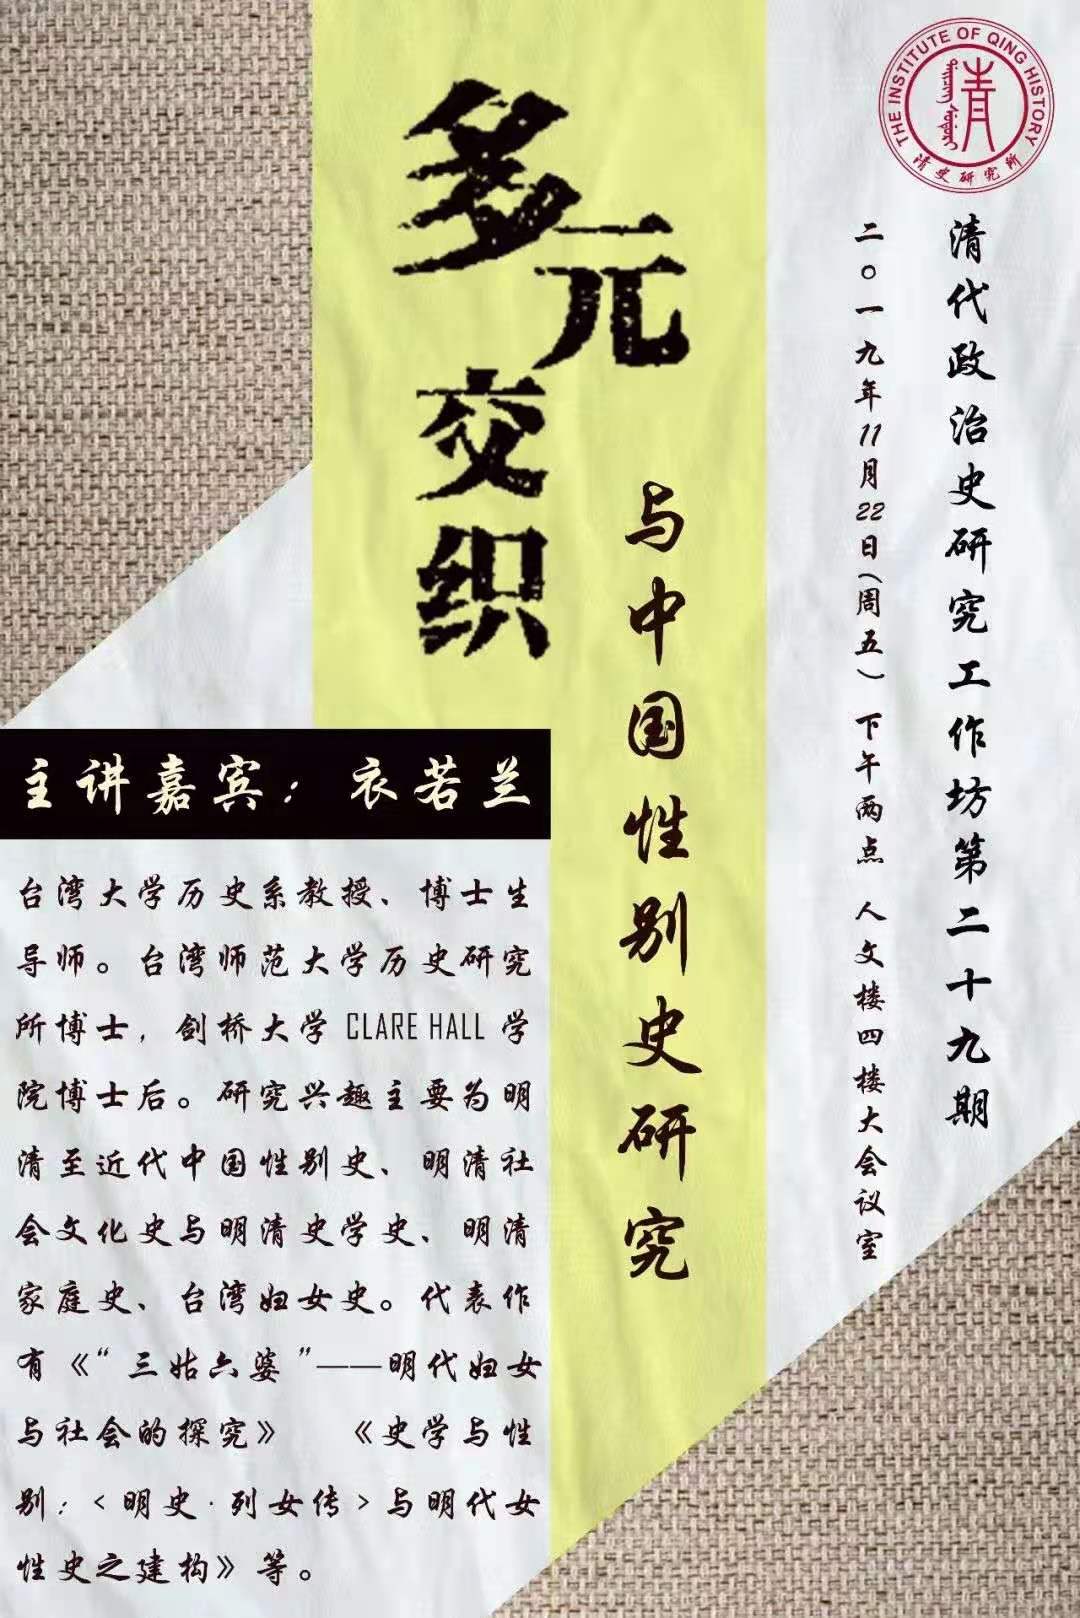 THE INSTITUTE OF QING HISTORY
清
清史研究所
清代政治史研究工作坊第二十九期
二〇一九年11月22日(周五) 下午两点 人文楼四楼大会议室
多元
交织
与中国性别史研究
主讲嘉宾：衣若兰
台湾大学历史系教授、博士生
导师。台湾师范大学历史研究
所博士，剑桥大学 CLARE HALL 学
院博士后。研究兴趣主要为明
清至近代中国性别史、明清社
会文化史与明清史学史、明清
家庭史、台湾妇女史。代表作
有《“三姑六婆”——明代妇女
与社会的探究》 《史学与性
别：<明史·列女传>与明代女
性史之建构》等。